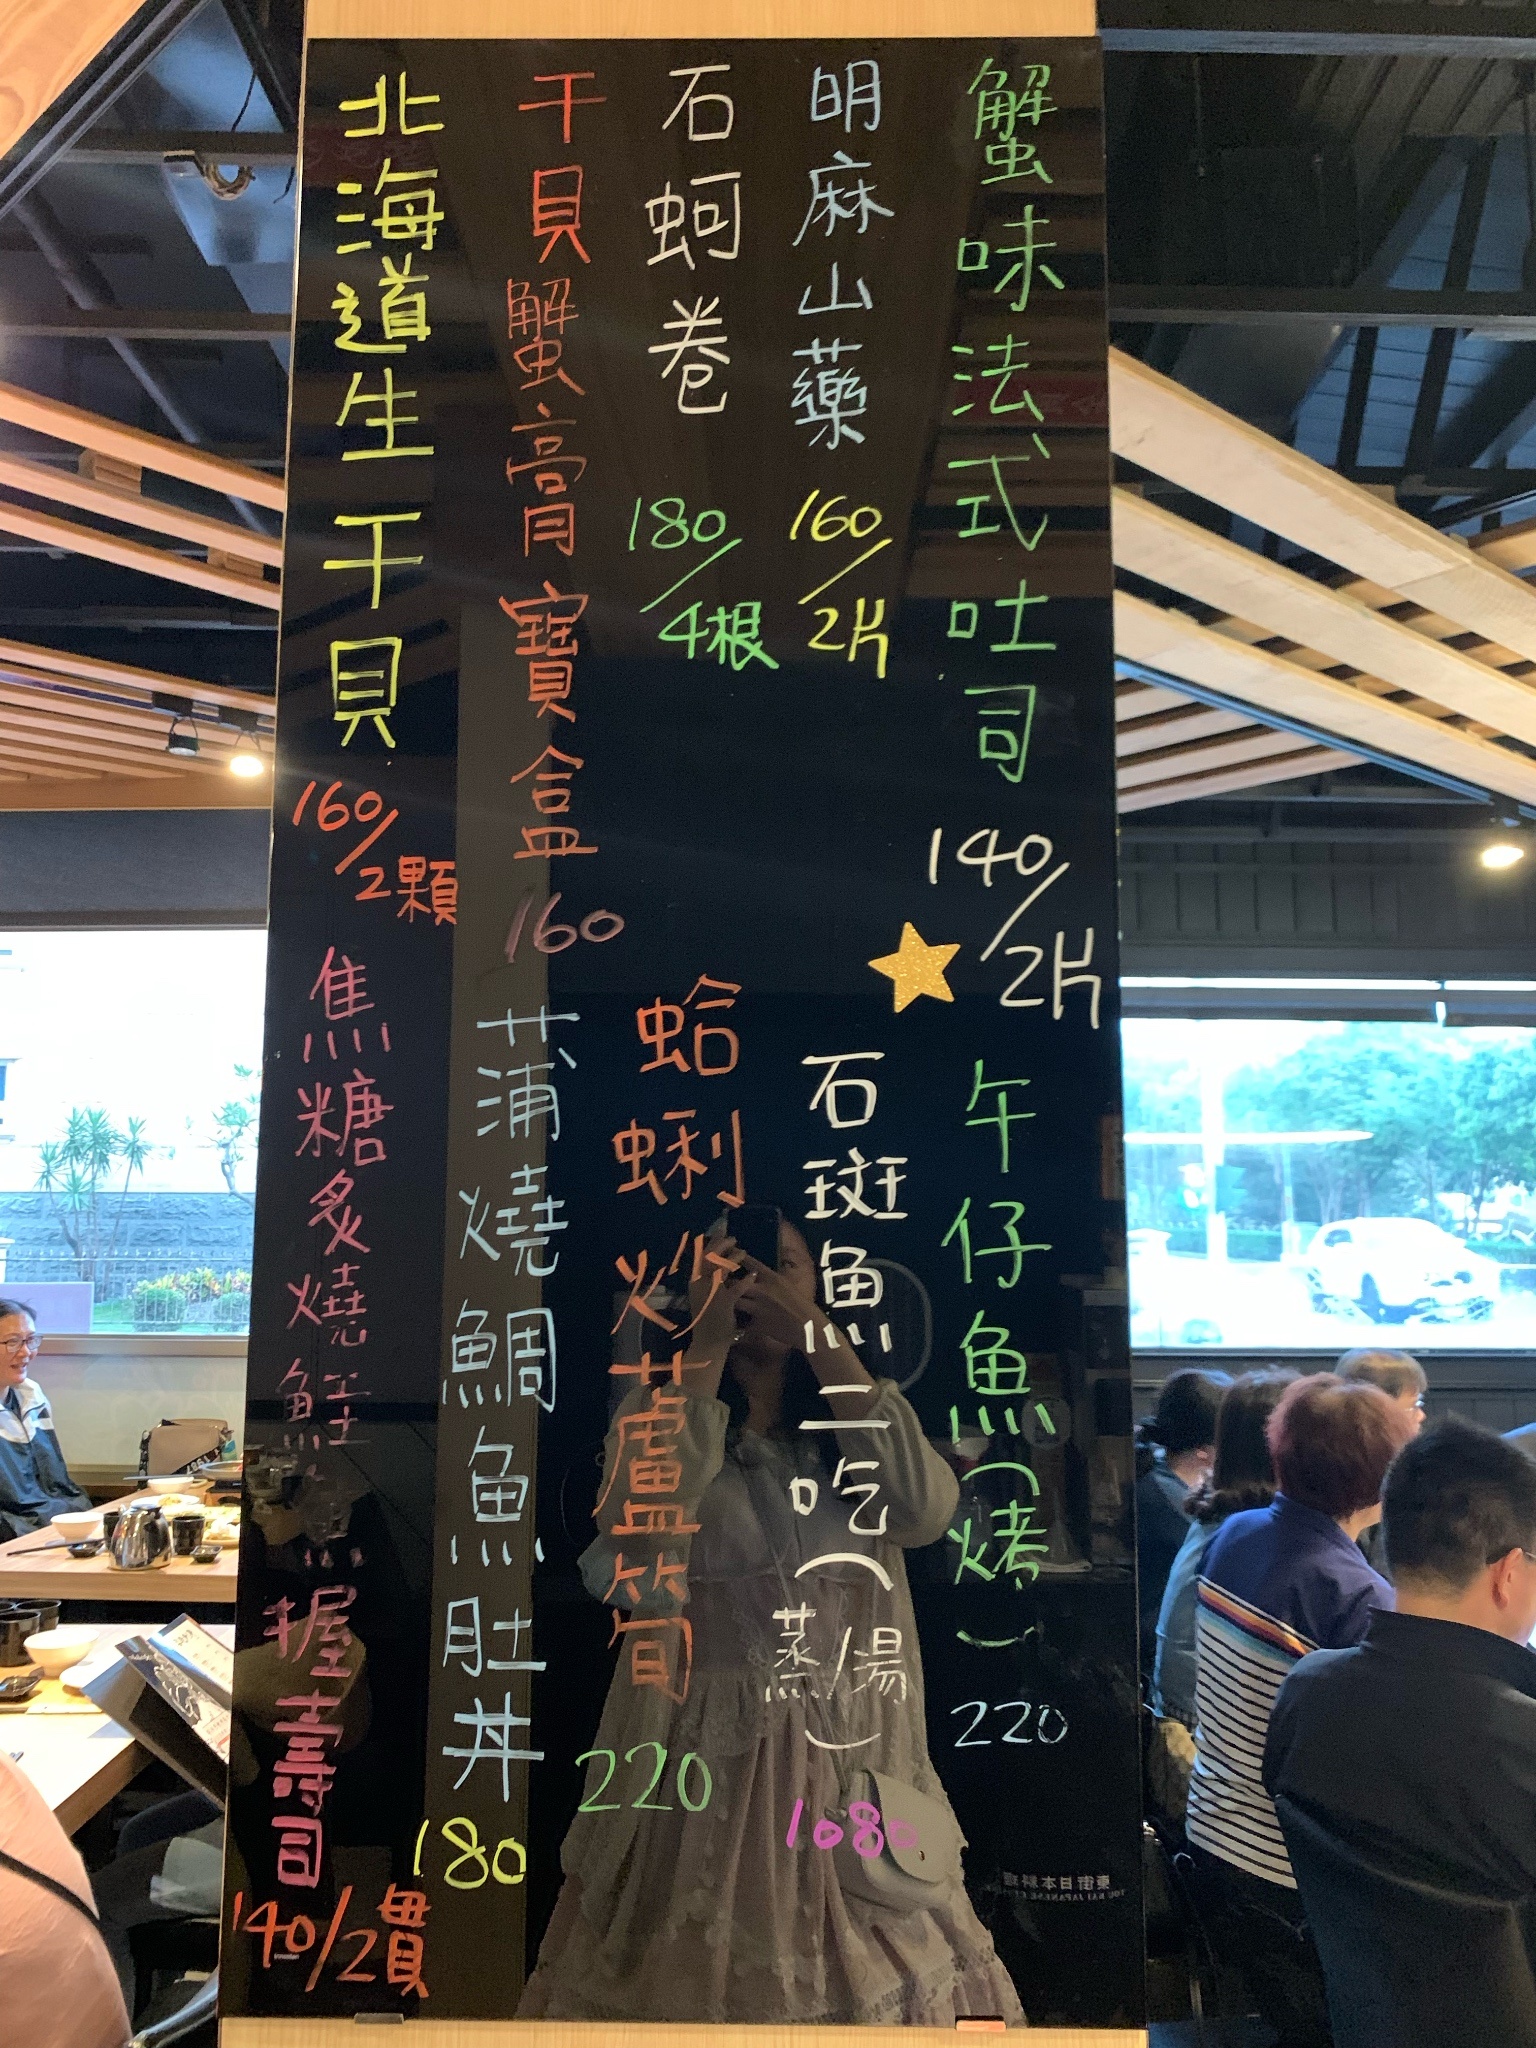 蟹味法式吐司
140/2片
午仔魚(烤)
220
明麻山藥
160/2片
石斑魚二吃(蒸/湯)
1080
石蚵卷
180/4根
蛤蜊炒蘆筍
220
干貝蟹膏寶盒
160
蒲燒鯛魚肚丼
180
北海道生干貝
160/2顆
焦糖炙燒鮭魚握壽司
140/2貫
東街日本料理